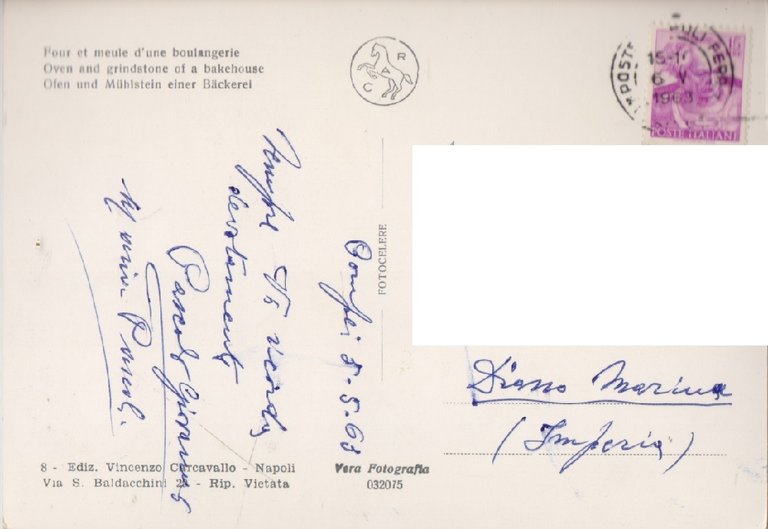 Four et meule d'une boulangerie
Oven and grindstone of a bakehouse
Ofen und Mühlstein einer Bäckerei
R A C
POSTE ITALIANE
15-1
6 V
1963
FOTOCELERE
Pompei 5-5-63
Sempre Vi ricorda
devotamente
Pascoli Giovanni
Diano Marina
(Imperia)
8 - Ediz. Vincenzo Carcavallo - Napoli
Via S. Baldacchini 2 - Rip. Vietata
Vera Fotografia
032075